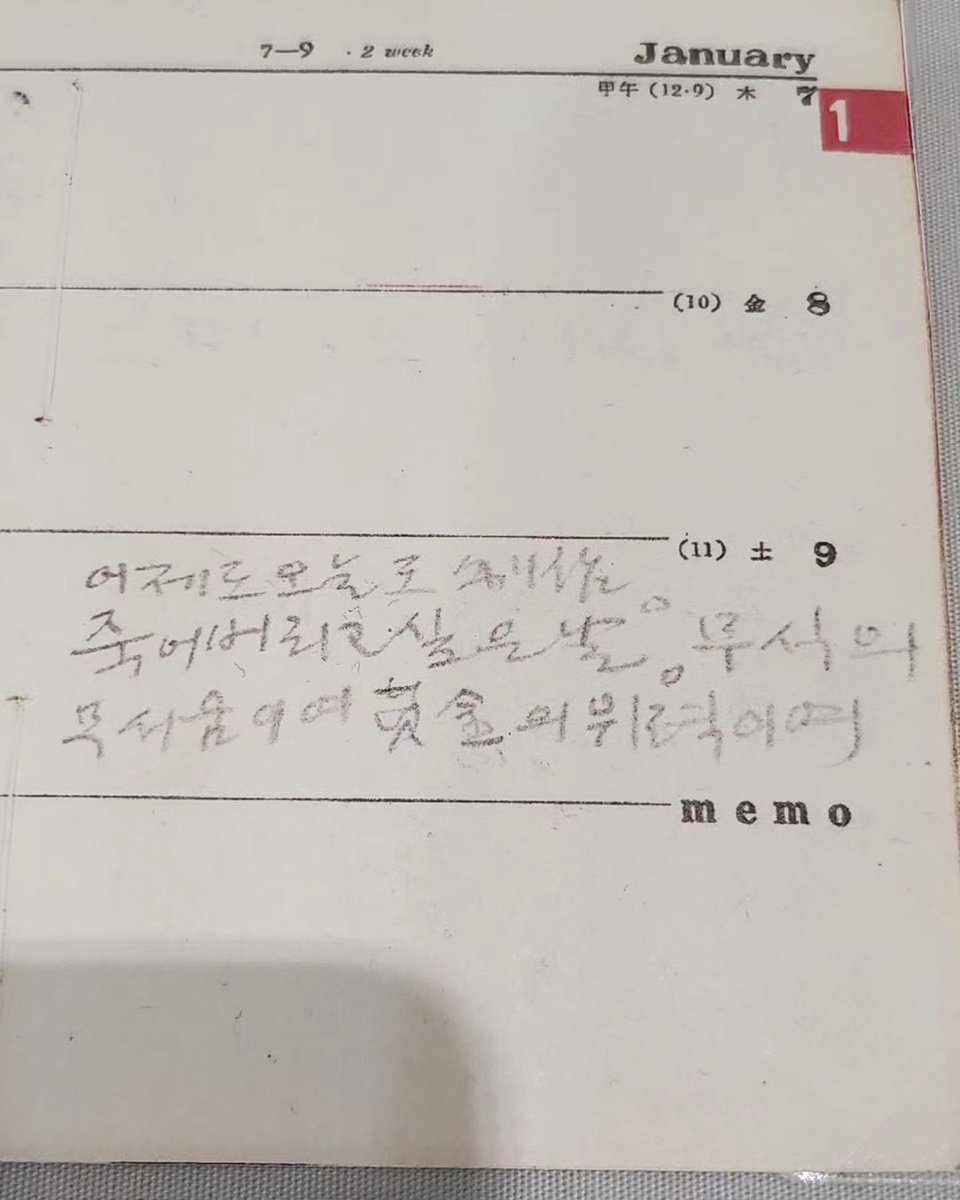 7—9 · 2 week January
甲午 (12·9) 木 7
1
(10) 金 8
(11) 土 9
어제도 오늘도
죽어버리고 싶은 날。 무식의
무서움이여 의 위력이여
memo